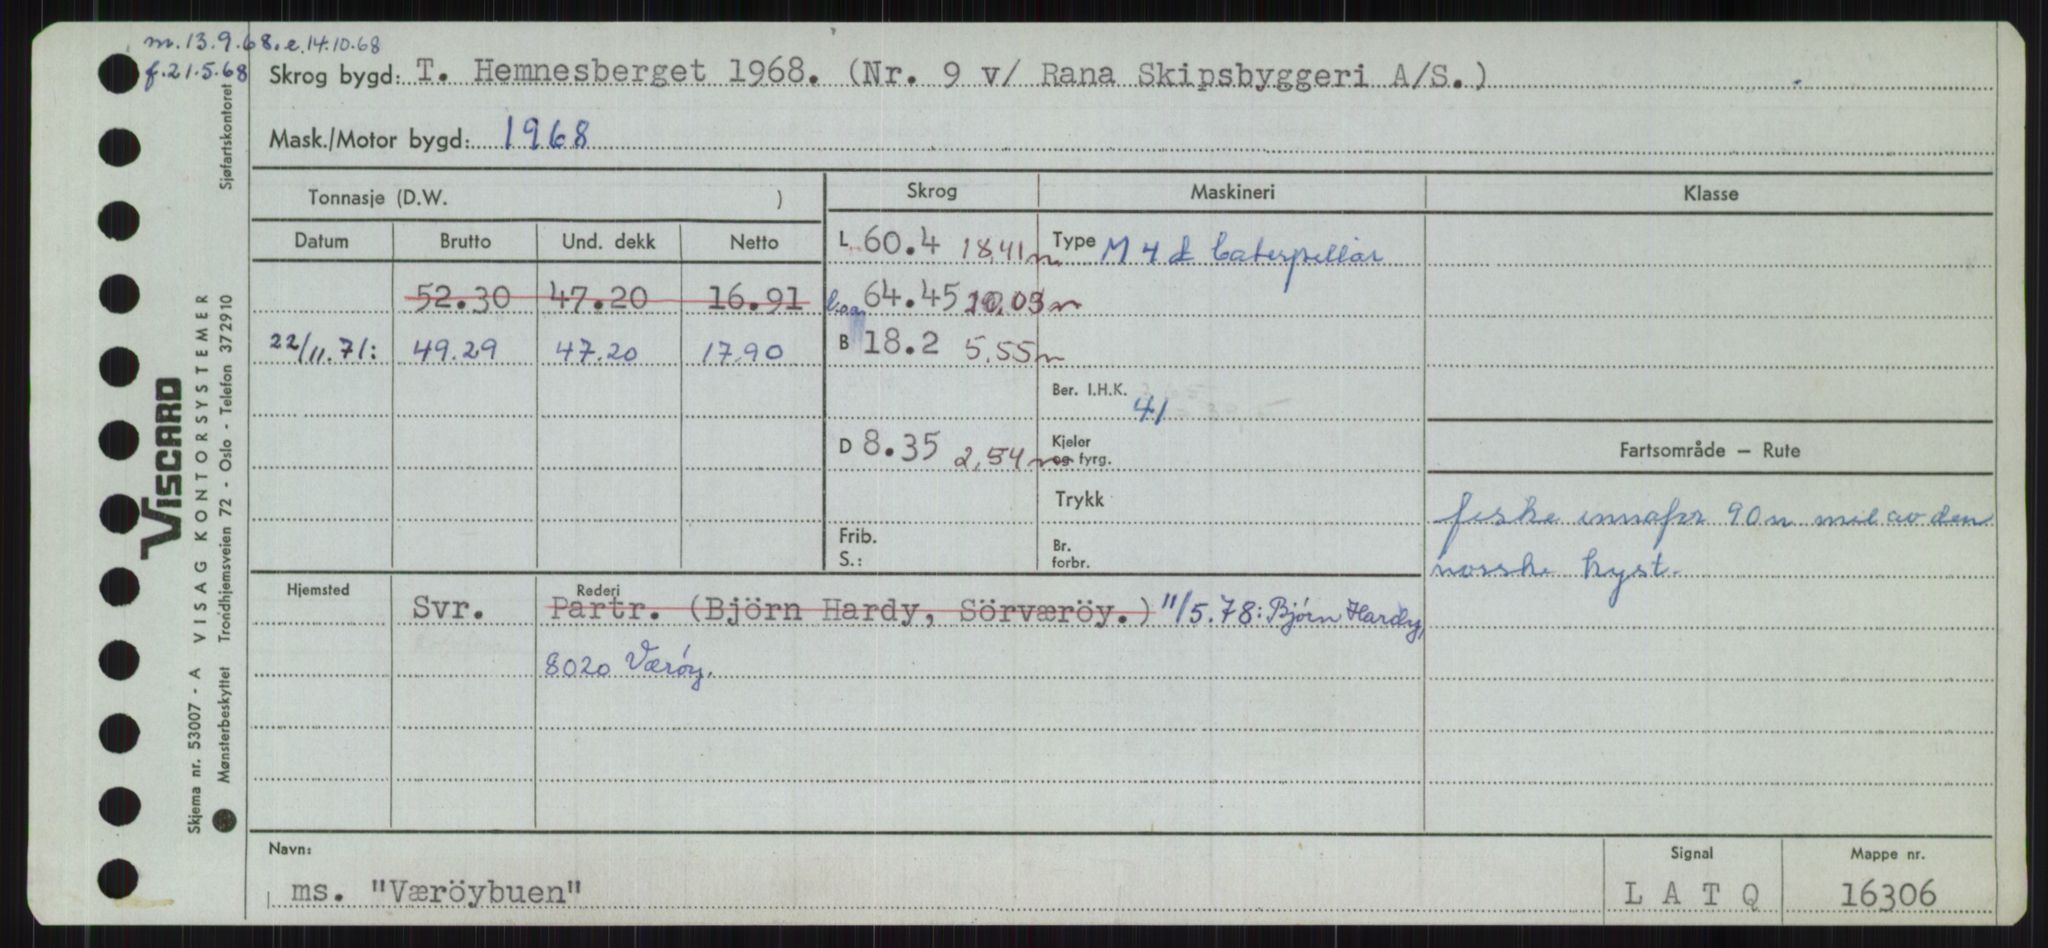 m. 13.9.68. e. 14.10.68
f. 21.5.68
Skrog bygd: T. Hemnesberget 1968. (Nr. 9 v/ Rana Skipsbyggeri A/S.)
Mask./Motor bygd: 1968
Tonnasje (D.W. )
Skrog Maskineri Klasse
Datum Brutto Und. dekk Netto
L. 60.4 18,41 m Type M 4 Caterpillar
52.30 47.20 16.91
l.o.a. 64.45 m
22/11.71: 49.29 47.20 17.90
B 18.2 5.55 m
Ber. I.H.K. 41
D 8.35 2,54 m
Kjeler og fyrg.
Trykk
Frib.
S.:
Br. forbr.
Fartsområde — Rute
fiske innafor 90 n mil av den
norske kyst.
Hjemsted Rederi
Svr. Partr. (Björn Hardy, Sörværöy.) 11/5.78: Bjørn Hardy,
8020 Værøy.
Navn: Signal Mappe nr.
ms. "Væröybuen" L A T Q 16306
Sjøfartskontoret
VISCARD
VISAG KONTORSYSTEMER
Skjema nr. 53007 - A
Mønsterbeskyttet Trondhjemsveien 72 - Oslo - Telefon 372910